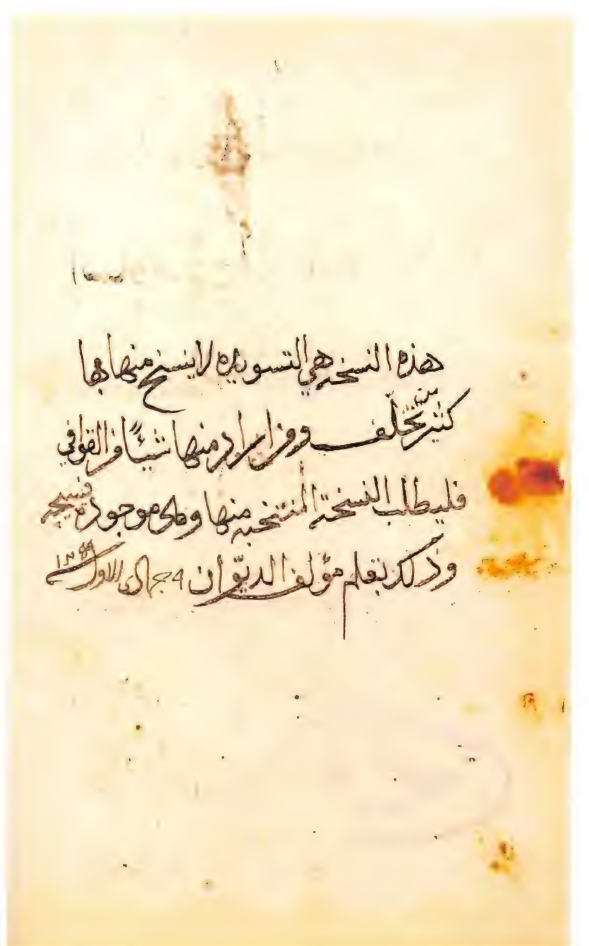 هذه النسخه هي التسويده لا ينسخ منها بها
كثير من تخلف ومن اراد منها شيئاً من القوافي
فليطلب النسخة المنتخبه منها وهي موجوده
وذلك بقلم مؤلف الديوان 4 جمادى الاول سنة ١٢٩٩